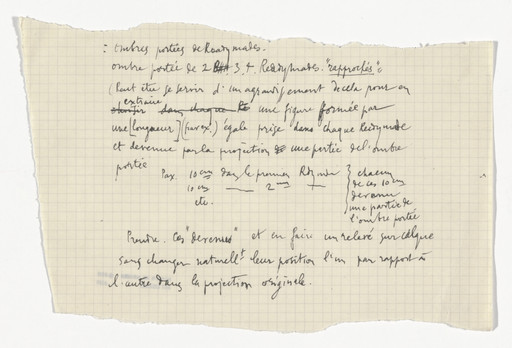 : Ombres portées de Readymades.
ombre portée de 2 3. 4. Readymades. "rapprochés".
(Peut être se servir d'un agrandissement de cela pour en
extraire
dans chaque une figure formée par
une [longueur] (par ex.) égale prise dans chaque Readymade
et devenue par la projection une partie de l'ombre
portée
Par. 10 cm dans le premier Rdymade
10 cm — 2 —
etc.
chacun
de ces 10 cm
devenu
une partie de
l'ombre portée
Prendre. Ces "devenus" et en faire un relevé sur calque
sans changer naturellt leur position l'un par rapport à
l'autre dans la projection originale.